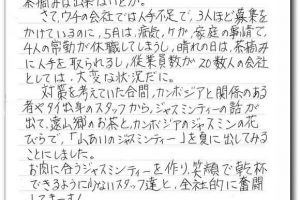 茶摘みは出来ないとか。
さて、ウチの会社では人手不足で、3人ほど募集を
かけているのに、5月は、病能、ケガ、家庭の事情で、
4人の常勤が休職してしまうし、晴れの日は、茶摘み
に人手を取られるし、従業員数が20数人の会社
としては、大変な状況だに。
対策を考えていた合間、カンボジアと関係のある
者やタイ出身のスタッフから、ジャスミンティーの話が
出て、遠山郷のお茶と、カンボジアのジャスミンの花
びらで、「山あいのジャスミンティー」を夏に出してみる
ことにしました。
お肉に合うジャスミンティーを作り、笑顔で乾杯
できるように少ないスタッフ達と、全社的に奮闘
してまーす!